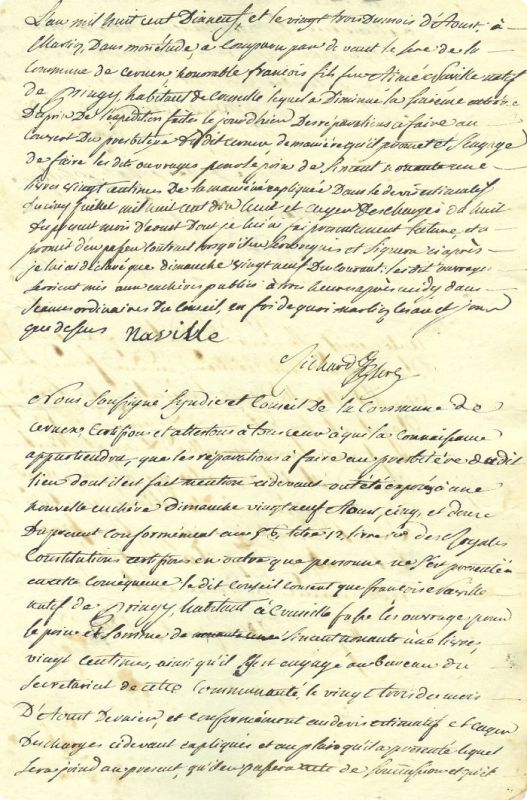 L'an mil huit cent Dixneuf, et le vingt trois du mois d'Aoust, à
Marlioz, Dans mon étude, a Comparu par devant le secre de la
Commune de cernex honorable françois fils feu Aimé Naville natif
de Pringy habitant de Couville lequel a Diminué la sixieme
Du prix De l'expedition faitte le jour Des reparations à faire au
Couvert Du presbitère Dudit cernex de maniere qu'il promet et s'engage
de faire les dits ouvrages pour le prix de cinq cent nonante une
livres vingt centimes De la maniere expliquée Dans le devis estimatif
du cinq juillet mil huit cent dix huit et cayer Descharges du huit
du mois D'aoust Dont je lui ai fai presentement lecture, et a
promis d'en passer Contract lorsqu'il en sera requis et signera ci après
je lui ai declaré que dimanche vingt neuf Du Courant les dit ouvrages
seroient mis aux enchères publics à trois heures après midy, dans
seances ordinaires Du Conseil, en foi de quoi marlioz les an et jour
que dessus Naville
Richard Secre
Nous soussigné syndic et Conseil De la Commune de
cernex, Certifions et attestons à tous ceux à qui la connaissance
appartiendra, que les réparations à faire au presbitère dudit
lieu dont il est fait mention cidevant ont été exposé à une
nouvelle enchère dimanche vingt neuf Aoust, cinq, et douze
Du present conformément aux § 6, titre 12, livre des Royales
Constitutions certifions en outre que personne ne s'est presenté
en cette Conséquence le dit Conseil Consent que françois Naville
natif de Pringy habitant à Couville fasse les ouvrages pour
le prix et somme de cinq cent nonante une livres,
vingt centimes, ainsi qu'il s'est engagé au bureau du
secretariat de cette Communauté, le vingt trois du mois
D'Aoust Dernier, et conformément au devis estimatif et cayer
Du charges cidevant expliqués et au plan qu'il a presenté lequel
sera joint au present, qu'il en passera acte de soumission et qu'il